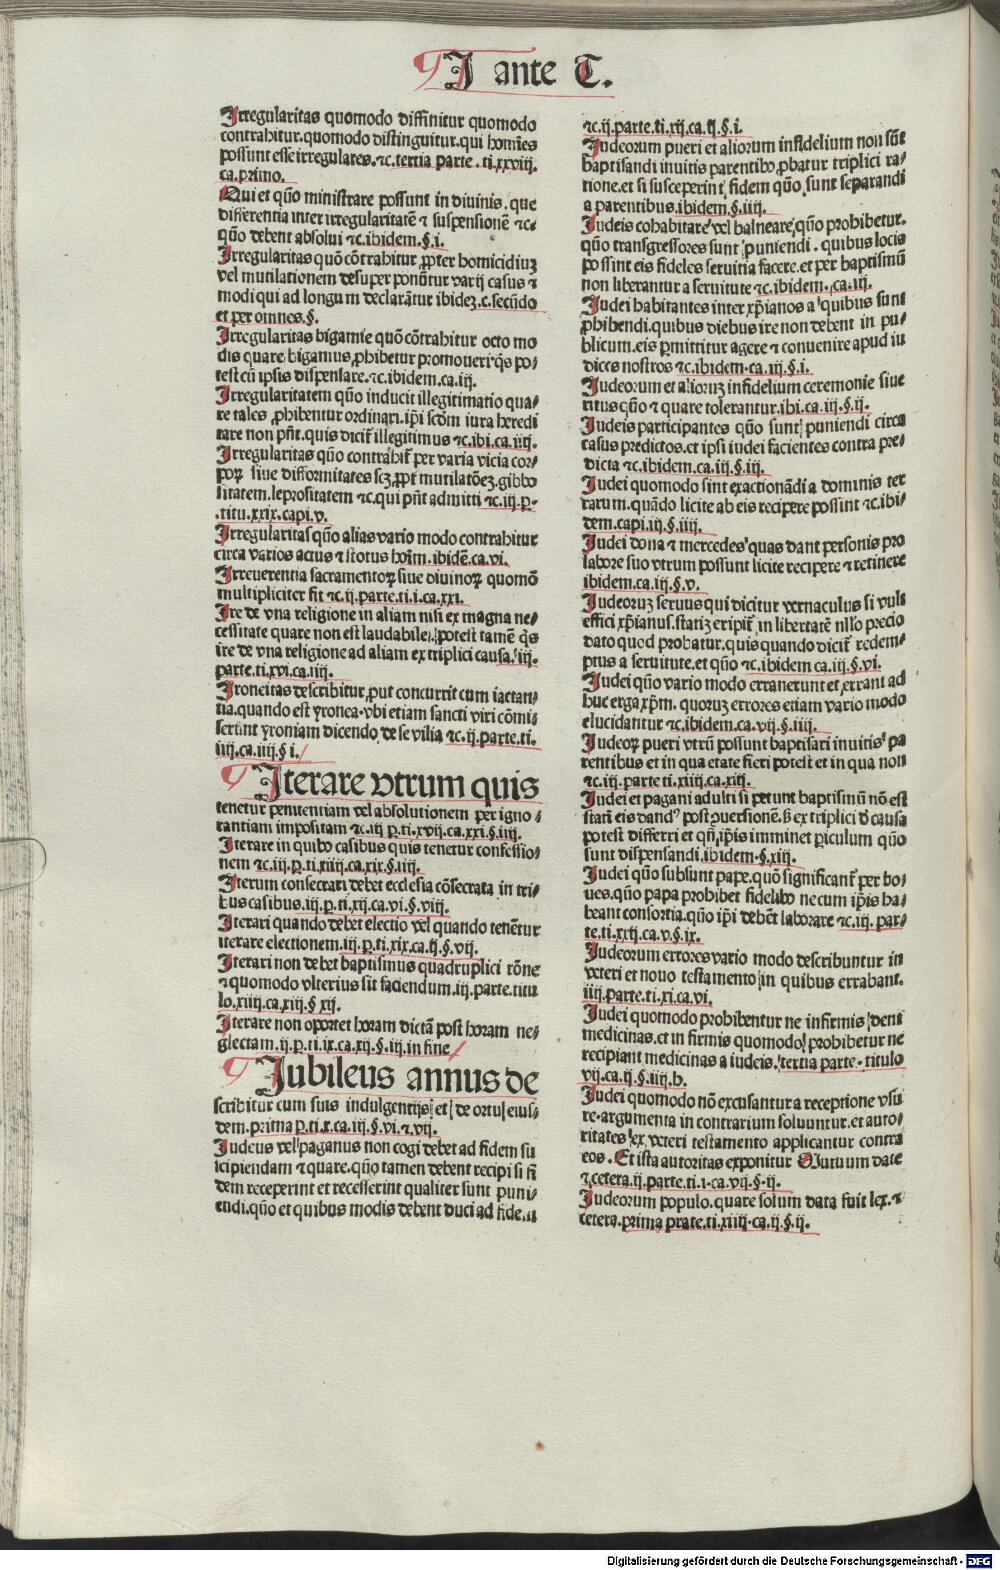 I ante T.
Irregularitas quomodo diffinitur quomodo
contrahitur.quomodo distinguitur.qui homīes
possunt esse irregulares.⁊c.tertia parte.ti.xxviij.
ca.primo.
Qui et qūo ministrare possunt in diuinis.que
differentia inter irregularitatē ⁊ suspensionē ⁊c⸗
qūo debent absolui ⁊c.ibidem.§.i.
Irregularitas quō cōtrahitur ꝓpter homicidiuꝫ
vel mutilationem desuper ponūtur varij casus ⁊
modi qui ad longum declarātur ibideꝫ.c.secūdo
et per omnes.§.
Irregularitas bigamie quō cōtrahitur octo mo
dis quare bigamus ꝓhibetur promoueri.q̄s po⸗
test cū ipsis dispensare.⁊c.ibidem.ca.iij.
Irregularitatem qūo inducit illegitimatio qua⸗
re tales ꝓhibentur ordinari.ip̄i scd̄m iura heredi
tare non pn̄t.quis dicit̄ illegitimus ⁊c.ibi.ca.iiij.
Irregularitas qūo contrahit̄ per varia vicia cor⸗
poꝝ siue difformitates scꝫ ꝓpt̄ mutilatōeꝫ.gibbo
sitatem.leprositatem ⁊c.qui pn̄t admitti ⁊c.iij.p.
.titu.xxix.capi.v.
Irregularitas qūo alias vario modo contrahitur
circa varios actus ⁊ status hoīm.ibidē.ca.vi.
Irreuerentia sacramentoꝝ siue diuinoꝝ quomō
multipliciter fit ⁊c.ij.parte.ti.i.ca.xxi.
Ire de vna religione in aliam nisi ex magna ne⸗
cessitate quare non est laudabile. potest tamē q̄s
ire de vna religione ad aliam ex triplici causa.iij.
parte.ti.xvi.ca.iiij.
Ironeitas describitur,put concurrit cum iactan⸗
tia.quando est yronea.vbi etiam sancti viri cōmi⸗
serūnt yroniam dicendo de se vilia ⁊c.ij.parte.ti.
iiij.ca.iiij.§ i.
Iterare vtrum quis
tenetur penitentiam vel absolutionem per igno⸗
rantiam impositam ⁊c.iij p.ti.xvij.ca.xxi.§.iiij.
Iterare in quibꝰ casibus quis tenetur confessio⸗
nem ⁊c.iij.p.ti.xiiij.ca.xix.§.iiij.
Iterum consecrari debet ecclesia cōsecrata in tri⸗
bus casibus.iij.p.ti.xij.ca.vi.§.viij.
Iterari quando debet electio vel quando tenētur
iterare electionem.iij.p.ti.xix.ca.ij.§.vij.
Iterari non debet baptismus quadruplici rōne
⁊ quomodo vlterius sit faciendum.iij.parte.titu
lo.xiiij.ca.xiij.§ xij.
Iterare non oportet horam dictā post horam ne⸗
glectam.ij.p.ti.ix.ca.xij.§.iij.in fine
Iubileus annus de
scribitur cum suis indulgentijs et de ortu eius⸗
dem.prima p.ti.x.ca.iij.§.vi.⁊.vij.
Iudeus vel paganus non cogi debet ad fidem su
scipiendam ⁊ quare.qūo tamen debent recipi si fi
dem receperint et recesserint qualiter sunt puni⸗
endi.qūo et quibus modis debent duci ad fidem
⁊c.ij.parte.ti.xij.ca.ij.§.i.
Iudeorum pueri et aliorum infidelium non sūt
baptisandi inuitis parentibꝰ ꝓbatur triplici ra⸗
tione.et si susceperint fidem qūo sunt separandi
a parentibus.ibidem.§.iij.
Iudeis cohabitare vel balneare qūo probibetur.
qūo transgressores sunt puniendi.quibus locis
possint eis fideles seruitia facere.et per baptismū
non liberantur a seruitute ⁊c.ibidem.ca.iij.
Iudei habitantes inter xp̄ianos a quibus sunt
ꝓhibendi.quibus diebus ire non debent in pu⸗
blicum.eis ꝑmittitur agere ⁊ conuenire apud iu
dices nostros ⁊c.ibidem.ca.iij.§.i.
Iudeorum et alioruꝫ infidelium ceremonie siue
ritus qūo ⁊ quare tolerantur.ibi.ca.iij.§.ij.
Iudeis participantes qūo sunt puniendi circa
casus predictos.et ipsi iudei facientes contra pre⸗
dicta ⁊c.ibidem.ca.iij.§.iij.
Iudei quomodo sint exactionādi a dominis ter
rarum.quādo licite ab eis recipere possint ⁊c.ibi⸗
dem.capi.iij.§.iiij.
Iudei dona ⁊ mercedes quas dant personis pro
labore suo vtrum possunt licite recipere ⁊ retinere
ibidem.ca.iij.§.v.
Iudeoruꝫ seruus qui dicitur vernaculus si vult
effici xp̄ianus.statiꝫ eripit̄ in libertatē nllo precio
dato quod probatur.quis quando dicit̄ redem⸗
ptus a seruitute.et qūo ⁊c.ibidem ca.iij.§.vi.
Iudei qūo vario modo errauerunt et errant ad
huc erga xp̄m. quoruꝫ errores etiam vario modo
elucidantur ⁊c.ibidem.ca.vij.§.iiij.
Iudeoꝝ pueri vtrū possunt baptisari inuitis pa
rentibus et in qua etate fieri potest et in qua non
⁊c.iij.parte ti.xiiij.ca.xiij.
Iudei et pagani adulti si petunt baptismū nō est
statī eis dandꝰ post ꝯuersionē.sꝫ ex triplici d̄ causa
potest differri et qn̄ ip̄is imminet periculum qūo
sunt dispensandi.ibidem.§.xiij.
Iudei qūo subsunt pape.quō significant̄ per bo⸗
ues.qūo papa prohibet fidelibꝰ ne cum ip̄is ha⸗
beant consortia.qūo ip̄i debēt laborare ⁊c.iij.par⸗
te.ti.xxij.ca.v.§.ix.
Iudeorum errores vario modo describuntur in
veteri et nouo testamento in quibus errabant.
iiij.parte.ti.xi.ca.vi.
Iudei quomodo probibentur ne infirmis dent
medicinas.et infirmis quomodo probibetur ne
recipiant medicinas a iudeis.tertia parte.titulo
vij.ca.ij.§.iiij.b.
Iudei quomodo nō excusantur a receptione vsu
re.argumenta in contrarium soluuntur.et auto⸗
ritates ex veteri testamento applicantur contra
eos.Et ista autoritas exponitur Mutuum date
⁊ cetera.ij.parte.ti.i.ca.vij.§.ij.
Iudeorum populo.quare solum data fuit lex.⁊
cetera.prima prate.ti.xiiij.ca.ij.§.ij.
Digitalisierung gefördert durch die Deutsche Forschungsgemeinschaft - DFG